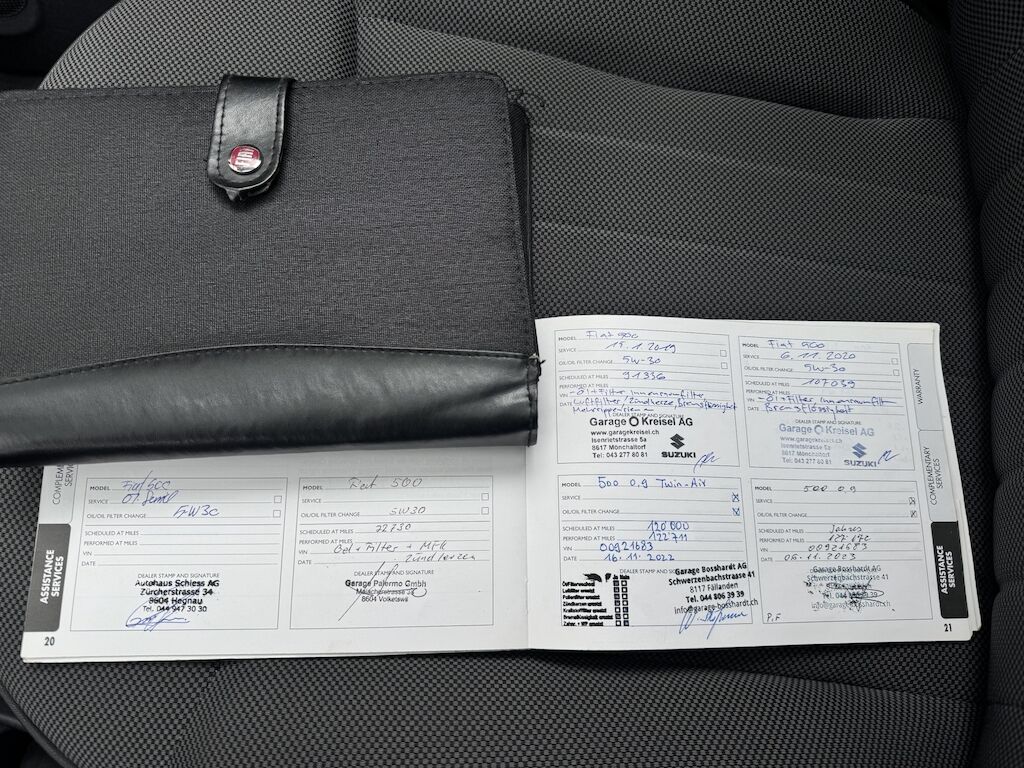 COMPLEMENTARY
SERVICES
ASSISTANCE
SERVICES
MODEL Fiat 500
SERVICE
OIL/OIL FILTER CHANGE 5W30
SCHEDULED AT MILES
PERFORMED AT MILES
VIN
DATE
DEALER STAMP AND SIGNATURE
Autohaus Schiess AG
Zürcherstrasse 34
8604 Hegnau
Tel. 044 947 30 30
20
MODEL Fiat 500
SERVICE
OIL/OIL FILTER CHANGE 5W30
SCHEDULED AT MILES 72730
PERFORMED AT MILES
VIN Oel + Filter + MFK
DATE Zündkerzen
DEALER STAMP AND SIGNATURE
Garage Palermo Gmbh
8604 Volketswil
MODEL Fiat 500
SERVICE 15.1.2019
OIL/OIL FILTER CHANGE 5W-30
SCHEDULED AT MILES 91336
PERFORMED AT MILES
VIN - Öl + Filter, Innenraumfilter,
DATE Luftfilter, Zündkerze, Bremsflüssigkeit
DEALER STAMP AND SIGNATURE
Garage Kreisel AG
www.garagekreisel.ch
Isenrietstrasse 5a
8617 Mönchaltorf
Tel: 043 277 80 81
SUZUKI
MODEL Fiat 500
SERVICE 6.11.2020
OIL/OIL FILTER CHANGE 5W-30
SCHEDULED AT MILES 107039
PERFORMED AT MILES
VIN - Öl + Filter Innenraumfilt
DATE Bremsflüssigkeit
DEALER STAMP AND SIGNATURE
Garage Kreisel AG
www.garagekreisel.ch
Isenrietstrasse 5a
8617 Mönchaltorf
Tel: 043 277 80 81
SUZUKI
MODEL 500 0.9 Twin-Air
SERVICE
OIL/OIL FILTER CHANGE
SCHEDULED AT MILES 120'000
PERFORMED AT MILES 122'711
VIN 00921683
DATE 16.11.2022
DEALER STAMP AND SIGNATURE
Ja Nein
Garage Bosshardt AG
Schwerzenbachstrasse 41
8117 Fällanden
Tel. 044 806 39 39
info@garage-bosshardt.ch
MODEL 500 0.9
SERVICE
OIL/OIL FILTER CHANGE
SCHEDULED AT MILES Jahres
PERFORMED AT MILES
VIN 00921683
DATE 06.11.2023
DEALER STAMP AND SIGNATURE
Garage Bosshardt AG
Schwerzenbachstrasse 41
info@garage-bosshardt.ch
P.F
WARRANTY
COMPLEMENTARY
SERVICES
ASSISTANCE
SERVICES
21